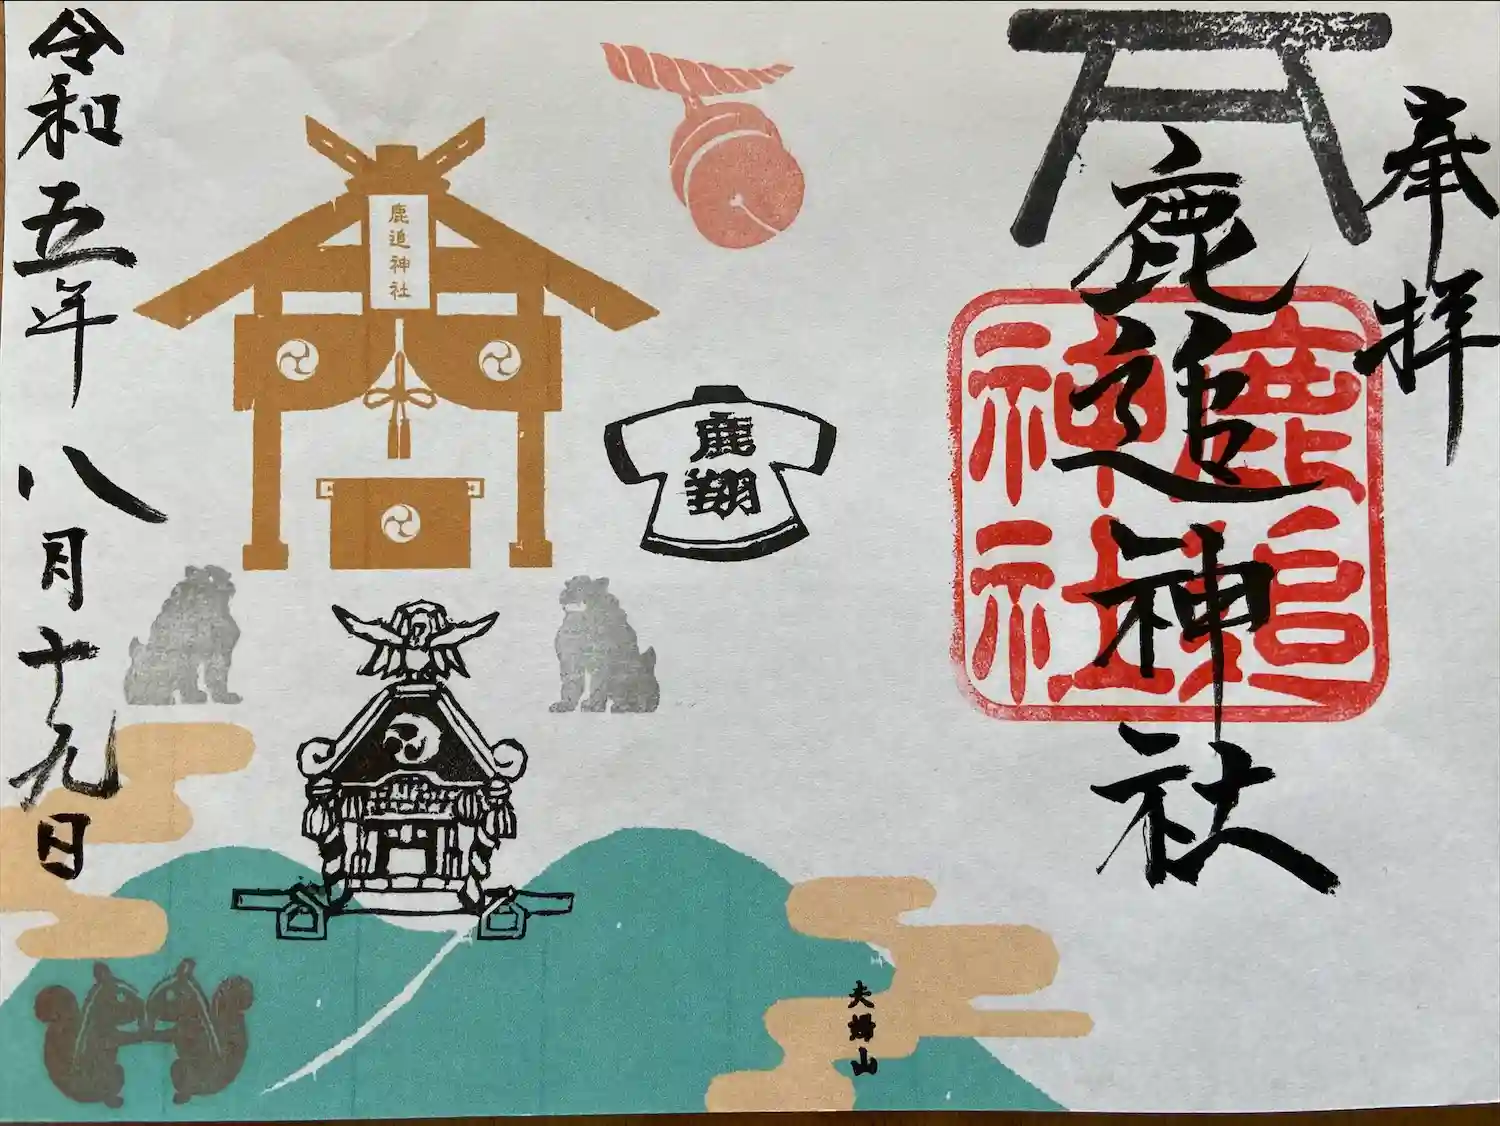 奉拝
鹿追神社
鹿追
神社
夫婦山
鹿翔
鹿追神社
令和五年八月十九日